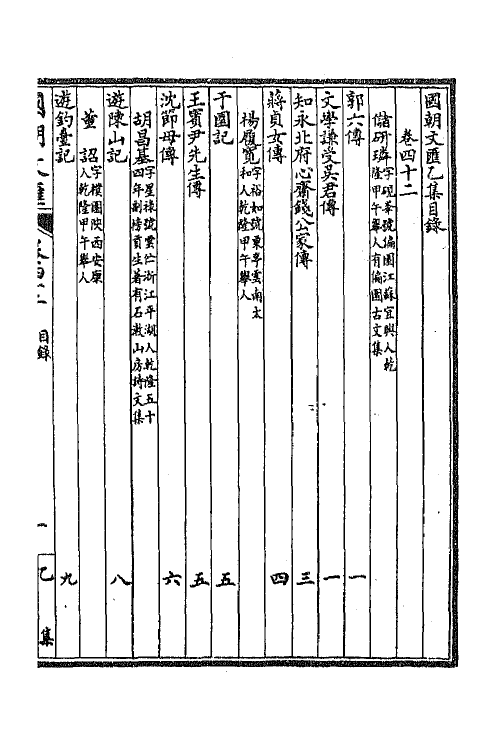 國朝文匯乙集目錄
卷四十二
儲研璘字砚峯號倫園江蘇宜興人乾
隆甲午舉人有倫園古文集
郭六傳 一
文學謙受吳君傳 一
知永北府心齋錢公家傳 三
蔣貞女傳 四
楊履寬字裕如號東亭雲南太
和人乾隆甲午舉人
于園記 五
王賓尹先生傳 五
沈節母傳 六
胡昌基字星祿號雲伫浙江平湖人乾隆五十
四年副榜貢生著有石瀨山房詩文集
遊陳山記 八
董詔字樸園陝西安康
人乾隆甲午舉人
遊釣臺記 九
國朝文匯 卷四十二 目錄 一 乙集